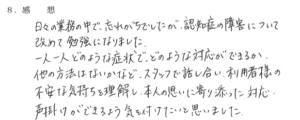 8. 感 想
日々の業務の中で、忘れがちでしたが、認知症の障害について
改めて勉強になりました。
一人一人どのような症状で、どのような対応ができるか、
他の方法はないかなど、スタッフで話し合い、利用者様の
不安な気持ちを理解し、本人の思いに寄り添った対応、
声掛けができるよう気を付けたいと思いました。